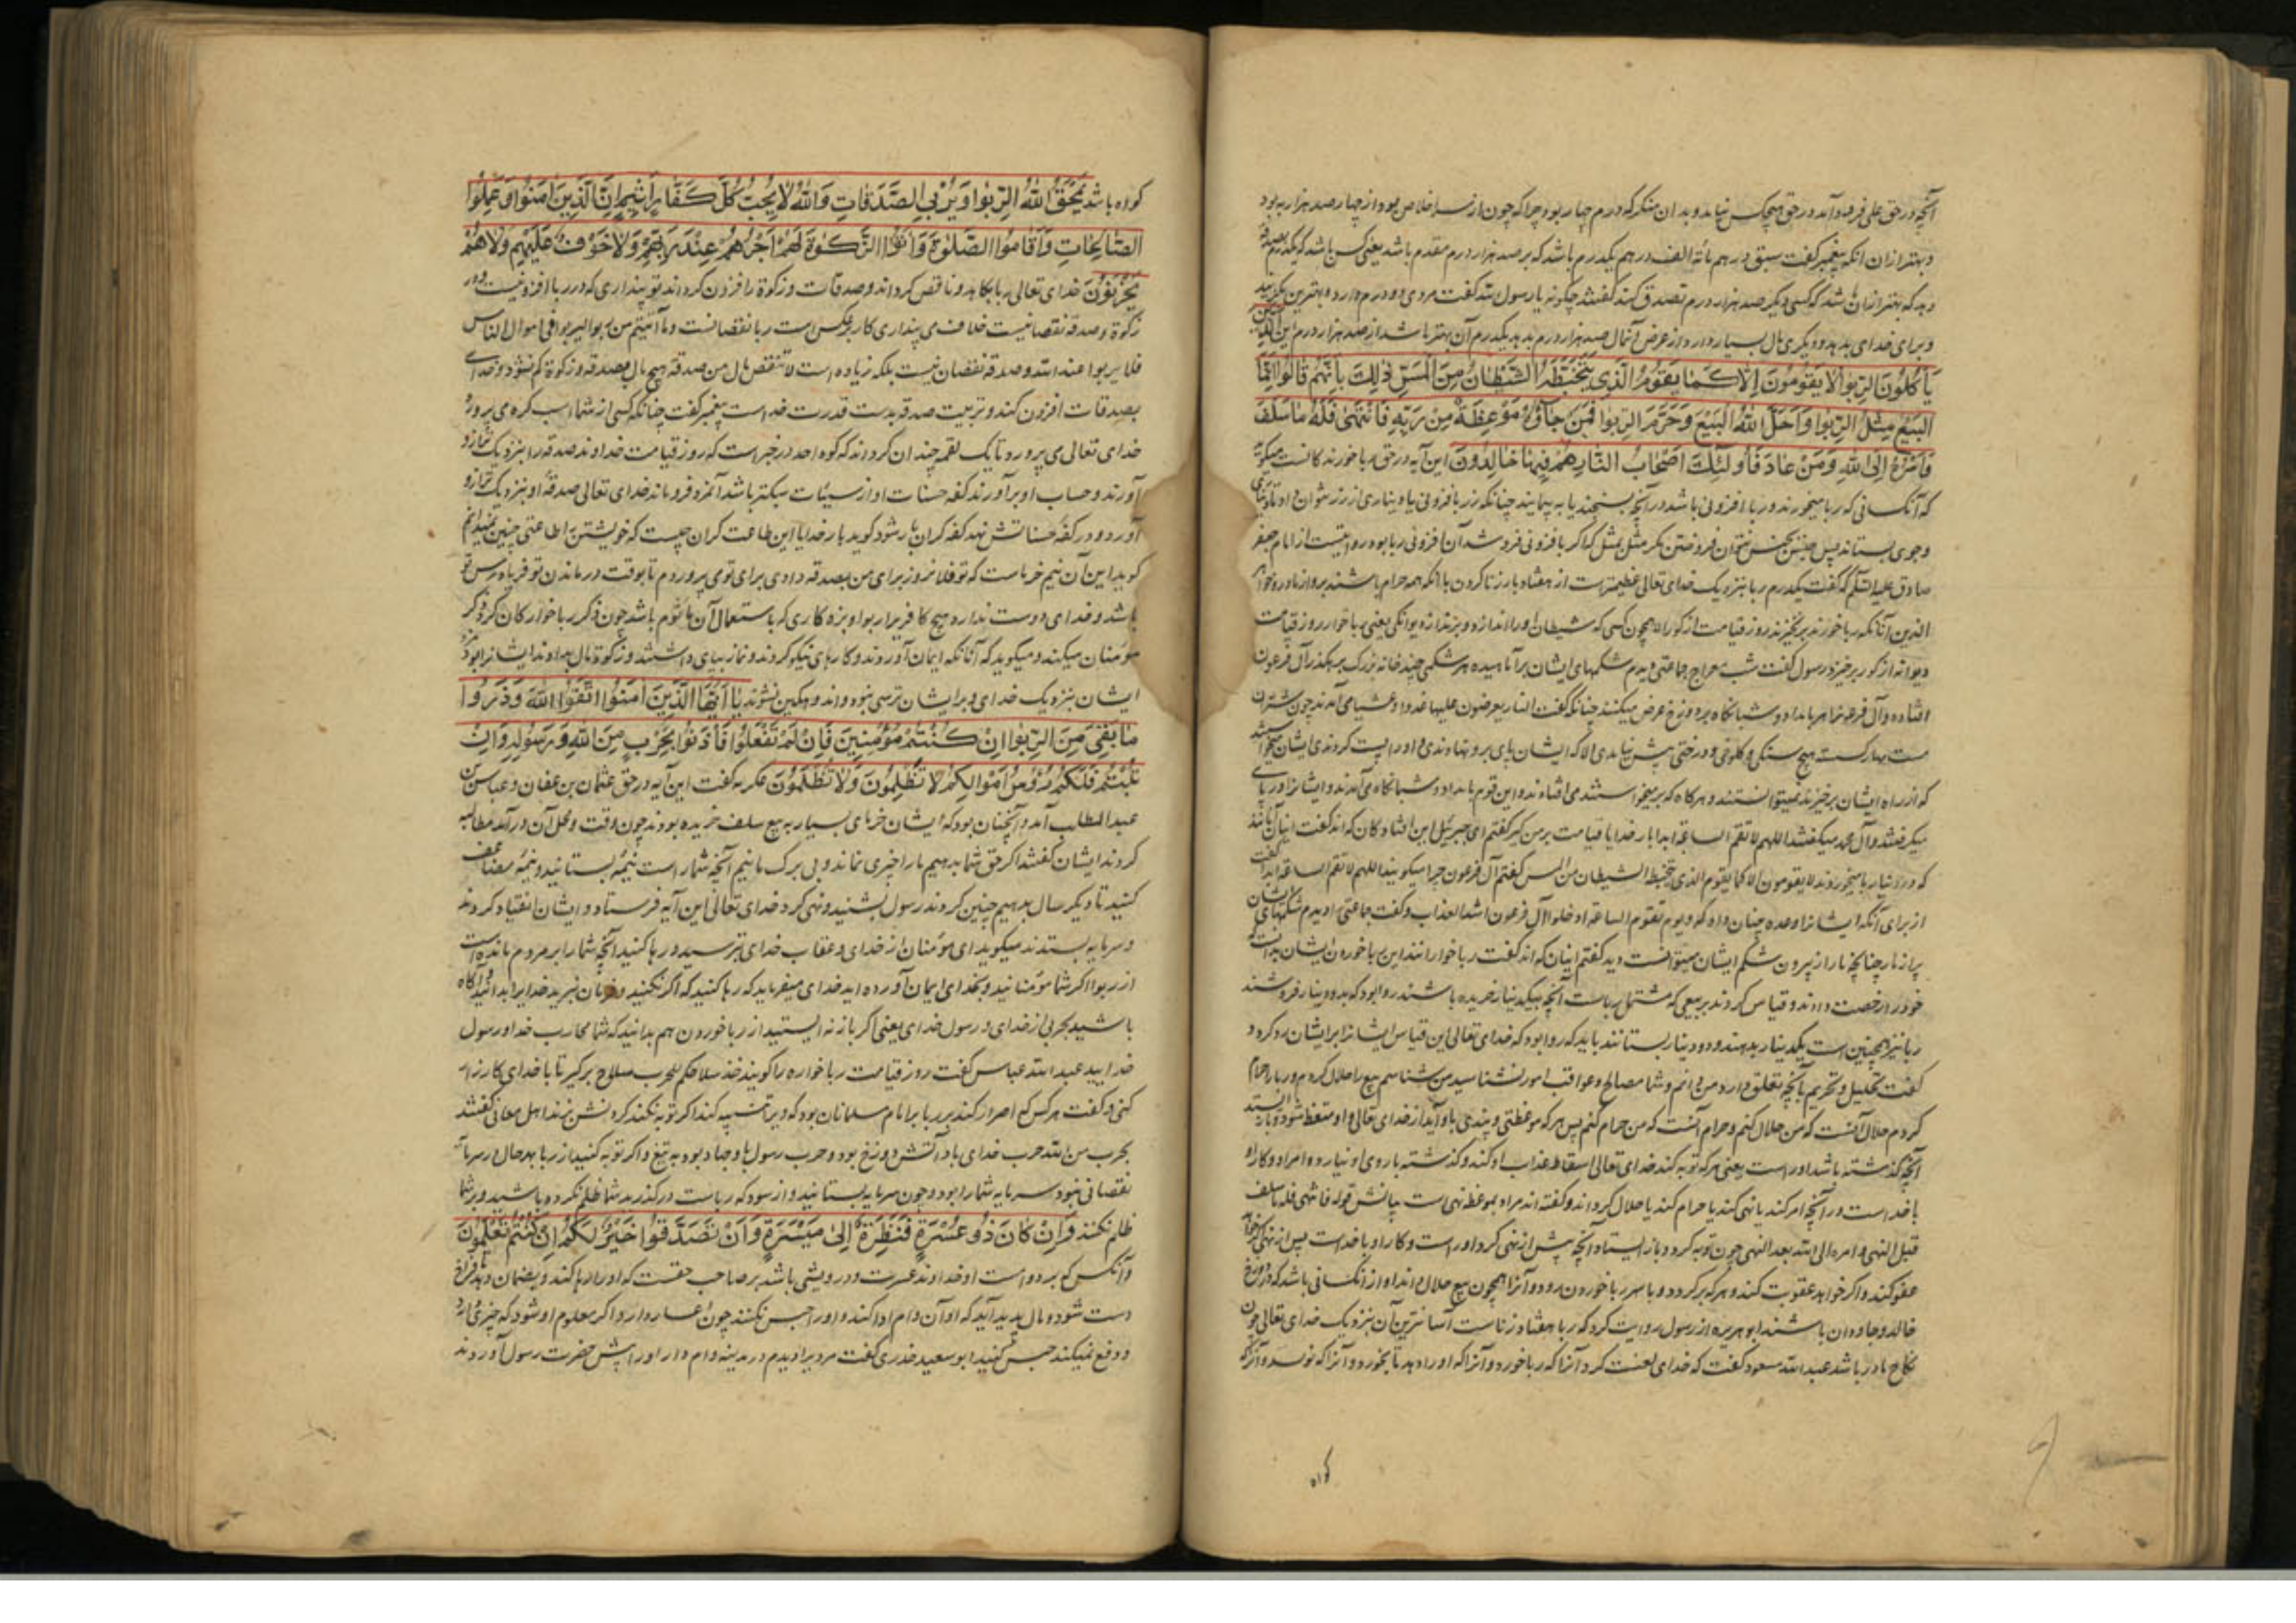 آنچه در حق علی فرود آمد در حق هیچکس نیامد و بدان منکر که درم چهار بود چرا که چون از سر اخلاص بود از چهار صد هزار به بود
و بهتر از آن آنکه پیغمبر گفت سبق درهم مائة الف درهم یکدرم باشد که بر صد هزار درم مقدم باشد یعنی کس باشد که یکدرم بصدقه
دهد که بهتر از آن باشد که کسی دیگر صد هزار درم تصدق کند گفتند چگونه یا رسول الله گفت مردی دو درم دارد و بهترین
و برای خدای بدهد و دیگری مال بسیار دارد از عرض آنمال صد هزار درم بدهد یکدرم آن بهتر باشد از صد هزار درم این الذین
یَأْکُلُونَ الرِّبٰوا لَا یَقُومُونَ إِلَّا کَمَا یَقُومُ الَّذِی یَتَخَبَّطُهُ الشَّیْطَانُ مِنَ الْمَسِّ ذٰلِکَ بِأَنَّهُمْ قَالُوا إِنَّمَا
الْبَیْعُ مِثْلُ الرِّبٰوا وَأَحَلَّ اللّٰهُ الْبَیْعَ وَحَرَّمَ الرِّبٰوا فَمَنْ جَآءَهُ مَوْعِظَةٌ مِنْ رَبِّهِ فَانْتَهٰی فَلَهُ مَا سَلَفَ
وَأَمْرُهُ إِلَی اللّٰهِ وَمَنْ عَادَ فَأُولٰئِکَ أَصْحَابُ النَّارِ هُمْ فِیهَا خَالِدُونَ این آیه در حق ربا خورندکانست میکوید
که آنکسانی که ربا میخورند و ربا افزونی باشد در آنچه بسنجند یا به پیمایند چنانکه زر بافزونی یا دیناری از زر نتوان داد تا دیناری
وجوی بستاند پس جنس بجنس نتوان فروختن مکر مثل بمثل که اکر بافزونی فروشد آن افزونی ربا بود روایتست از امام جعفر
صادق علیه السلم که گفت یکدرم ربا بنزدیک خدای تعالی عظیمتر است از هفتاد بار زنا کردن با آنکه همه حرام باشند بر او از مادر و خواهر
الذین آنانکه ربا خورند برنخیزند روز قیامت از کور الا همچون کسی که شیطان او را اندازد و بزند از دیوانکی یعنی ربا خوار روز قیامت
دیوانه از کور برخیزد رسول گفت شب معراج جماعتی دیدم شکمهای ایشان برآماسیده هر شکمی چند خانه بزرک بر رهکذر آل فرعون
افتاده و آل فرعون را هر بامداد و شبانکاه بر دوزخ عرض میکنند چنانکه گفت النار یعرضون علیها غدوا وعشیا می آمدند چون شتران
مست مهار کسته هیچ سنکی و کلوخی و درختی پیش نیامدی الا که ایشان پای بر او نهادندی و او را پست کردندی ایشان میخواستند
که از راه ایشان برخیزند نمیتوانستند و هر کاه که برمیخواستند می افتادند و این قوم بامداد و شبانکاه می آمدند و ایشانرا در پای
میکرفتند و آل محمد میکفتند اللهم لا تقم الساعة ابدا بار خدایا قیامت بر من کیر گفتم ای جبرئیل این افتادکان که اند گفت اینان آنانند
که در دنیا ربا میخوردند لا یقومون الا کما یقوم الذی یتخبطه الشیطان من المس گفتم آل فرعون چرا میکویند اللهم لا تقم الساعة ابدا گفت
از برای آنکه ایشانرا وعده چنان داده که و یوم تقوم الساعة ادخلوا آل فرعون اشد العذاب و گفت جماعتی را دیدم شکمهای ایشان
پر از مار چنانچه مار از بیرون شکم ایشان میتوانست دید گفتم اینان که اند گفت ربا خوارانند این ربا خوردن ایشان بدانست که
خود را رخصت دادند و قیاس کردند بر بیعی که مشتمل بر ربا است آنچه بیکدینار خریده باشند روا بود که بدو دینار فروشند
ربا نیز همچنین است یکدینار بدهند و دو دینار بستانند باید که روا بود که خدای تعالی این قیاس ایشانرا بر ایشان رد کرد و
گفت تحلیل و تحریم بآنچه تعلق دارد من دانم و شما مصالح و عواقب امور نشناسید من شناسم بیع را حلال کردم و ربا را حرام
کردم حلال آنست که من حلال کنم و حرام آنست که من حرام کنم پس هر که موعظتی و پندی باو آید از خدای تعالی و او متعظ شود و باز ایستد
آنچه گذشته باشد او راست یعنی هر که توبه کند خدای تعالی اسقاط عذاب او کند و گذشته با روی او نیارد و امر او و کار او
با خداست در آنچه امر کند یا نهی کند یا حرام کند یا حلال کرداند و گفته اند مراد بموعظه نهی است بیانش قوله فانتهی فله ما سلف
قبل النهی و امره الی الله بعد النهی چون توبه کرد و باز ایستاد آنچه پیش از نهی کرد او راست و کار او با خداست پس از نهی اکر خواهد
عفو کند و اکر خواهد عقوبت کند و هر که برکردد و با سر ربا خوردن رود و آنرا همچون بیع حلال داند او از آنکسانی باشد که در دوزخ
خالد و جاودان باشند ابو هریره از رسول روایت کرد که ربا هفتاد زناست آسانترین آن بنزدیک خدای تعالی چون
نکاح مادر باشد عبد الله مسعود گفت که خدای لعنت کرد آنرا که ربا خورد و آنرا که او را دهد تا بخورد و آنرا که نویسد و آنرا که
کواه
کواه باشد یَمْحَقُ اللّٰهُ الرِّبٰوا وَیُرْبِی الصَّدَقَاتِ وَاللّٰهُ لَا یُحِبُّ کُلَّ کَفَّارٍ أَثِیمٍ إِنَّ الَّذِینَ اٰمَنُوا وَعَمِلُوا
الصَّالِحَاتِ وَأَقَامُوا الصَّلٰوةَ وَاٰتَوُا الزَّکٰوةَ لَهُمْ أَجْرُهُمْ عِنْدَ رَبِّهِمْ وَلَا خَوْفٌ عَلَیْهِمْ وَلَا هُمْ
یَحْزَنُونَ خدای تعالی ربا بکاهد و ناقص کرداند و صدقات و زکوة را افزون کرداند تو پنداری که در ربا افزونیست و در
زکوة و صدقه نقصانیست خلاف می پنداری کار برعکس است ربا نقصانست وما آتیتم من ربوا لیربوا فی اموال الناس
فلا یربوا عند الله و صدقه نقصان نیست بلکه زیاده است لا تنقص مال من صدقة هیچ مال بصدقه و زکوة کم نشود و خدای
بصدقات افزون کند و تربیت صدقه بدست قدرت خداست پیغمبر گفت چنانکه کسی از شما اسب کره می پرورد
خدای تعالی می پرورد تا یک لقمه چندان کرداند که کوه احد در خبر است که روز قیامت خداوند صدقه را بنزدیک ترازو
آورند و حساب او برآورند کفه حسنات او از سیئات سبکتر باشد آنمرد فروماند خدای تعالی صدقهٔ او بنزدیک ترازو
آورد و در کفهٔ حسناتش نهد کفه کران بار شود کوید بار خدایا این طاعت کران چیست که خویشتن را طاعتی چنین نمیدانم
کوید این آن نیم خرماست که تو فلانروز برای من بصدقه دادی برای تو می پروردم تا بوقت درماندن تو فریادرس تو
باشد و خدای دوست ندارد هیچ کافر برار بوا و بزه کاری که باستعمال آن مأثوم باشد چون ذکر ربا خوارکان کرد ذکر
مؤمنان میکند و میکوید که آنانکه ایمان آوردند و کارهای نیکو کردند و نماز بپای داشتند و زکوة مال بدادند ایشانرا بود مزد
ایشان بنزدیک خدای و بر ایشان ترسی نبود و اندوهکین نشوند یَا أَیُّهَا الَّذِینَ اٰمَنُوا اتَّقُوا اللّٰهَ وَذَرُوا
مَا بَقِیَ مِنَ الرِّبٰوا إِنْ کُنْتُمْ مُؤْمِنِینَ فَإِنْ لَمْ تَفْعَلُوا فَأْذَنُوا بِحَرْبٍ مِنَ اللّٰهِ وَرَسُولِهِ وَإِنْ
تُبْتُمْ فَلَکُمْ رُؤُسُ أَمْوَالِکُمْ لَا تَظْلِمُونَ وَلَا تُظْلَمُونَ عکرمه گفت این آیه در حق عثمان بن عفان و عباس بن
عبد المطلب آمد و آنچنان بود که ایشان خرمای بسیار به بیع سلف خریده بودند چون وقت و محل آن درآمد مطالبه
کردند ایشان گفتند اکر حق شما بدهیم ما را چیزی نماند و بی برک مانیم آنچه شمار است نیمهٔ بستانید و نیمهٔ مضاعف
کنید تا دیکر سال بدهیم چنین کردند رسول بشنید و نهی کرد خدای تعالی این آیه فرستاد و ایشان انقیاد کردند
و سرمایه بستدند میکوید ای مؤمنان از خدای و عقاب خدای بترسید و رها کنید آنچه شما را بر مردم مانده است
از ربوا اکر شما مؤمنانید و بخدای ایمان آورده اید خدای میفرماید که رها کنید که اکر نکنید و فرمان نبرید خدایرا بدانید و آکاه
باشید بحربی از خدای و رسول خدای یعنی اکر باز نه ایستید از ربا خوردن هم بدانید که شما محارب خدا و رسول
خدایید عبد الله عباس گفت روز قیامت ربا خواره را کویند خذ سلاحکم للحرب سلاح برکیر تا با خدای کارزار
کنی و گفت هر کس که اصرار کند بر ربا بر امام مسلمانان بود که ویرا تنبیه کند اکر توبه نکند کردنش بزند اهل معانی گفتند
بحرب من الله حرب خدای بادر آتش دوزخ بود و حرب رسول با و جهاد بود به تیغ و اکر توبه کنید از ربا بهر حال در سرمایه
نقصانی نبود سرمایه شما را بود و چون سرمایه بستانید و از سود که ریاست درکذرید شما ظلم نکرده باشید و بر شما
ظلم نکنند وَإِنْ کَانَ ذُو عُسْرَةٍ فَنَظِرَةٌ إِلٰی مَیْسَرَةٍ وَأَنْ تَصَدَّقُوا خَیْرٌ لَکُمْ إِنْ کُنْتُمْ تَعْلَمُونَ
و آنکس که بر دو است او خداوند عسرت و درویشی باشد بر صاحب حقست که او را رها کند و بضمان دهد تا فراخ
دست شود و مال پدید آید که او آن وام ادا کند و او را حبس نکنند چون اعسار دارد و اکر معلوم او شود که چیزی دارد
و دفع نمیکند حبس کنید ابو سعید خدری گفت مردیرا دیدم در مدینه وام دار او را پیش حضرت رسول آوردند